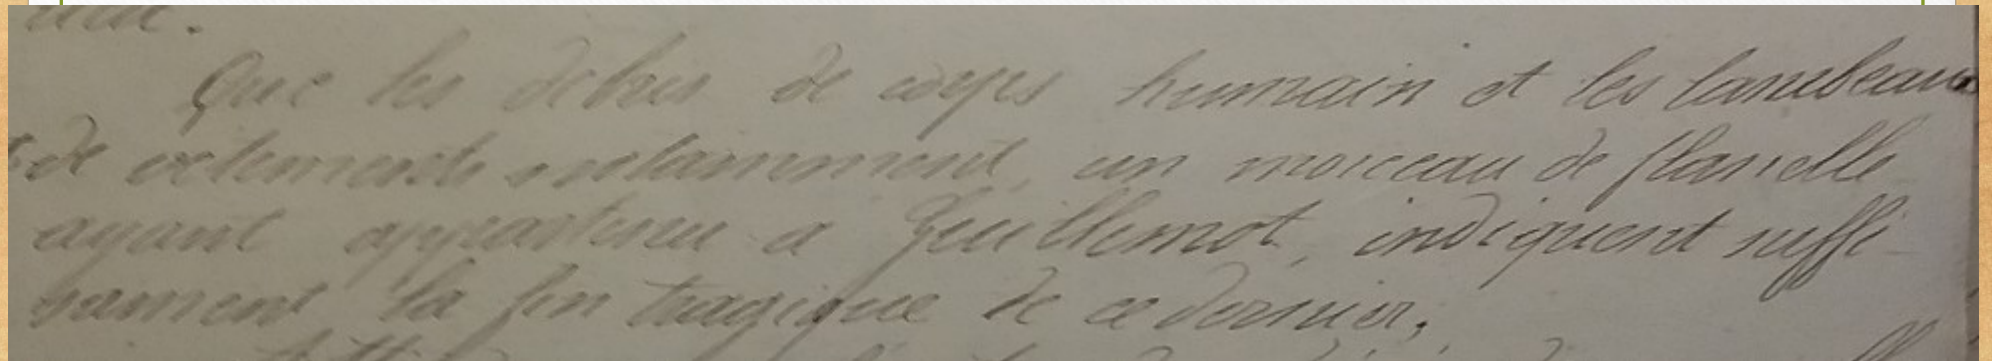 Que les debris de corps humain et les lambeaux
de vetements notamment, un morceau de flanelle
ayant appartenu a Guillemot, indiquent suffi-
samment la fin tragique de ce dernier;